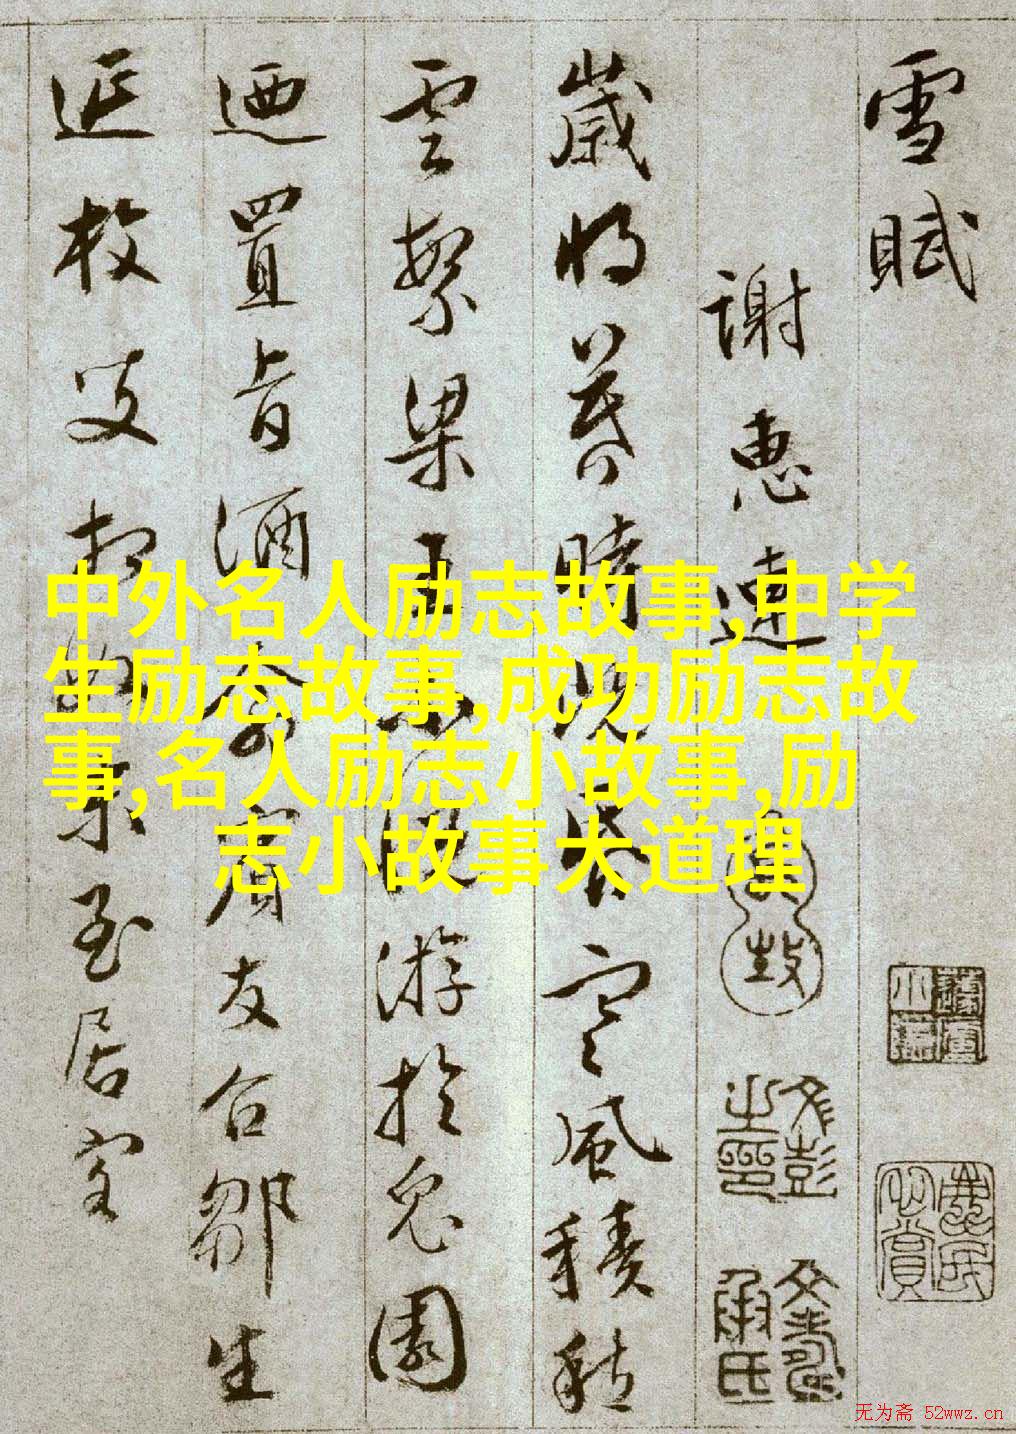 雪賦
謝惠連
歲将暮時既昏寒風積愁
雲繁梁王不悅游於兔園
迺置旨酒命賓友召鄒生
延枚叟相如末至居客
中外名人励志故事,中学
生励志故事,成功励志故
事,名人励志小故事,励
志小故事大道理
文彭之印
文壽承氏
无为斋 52wwz.cn